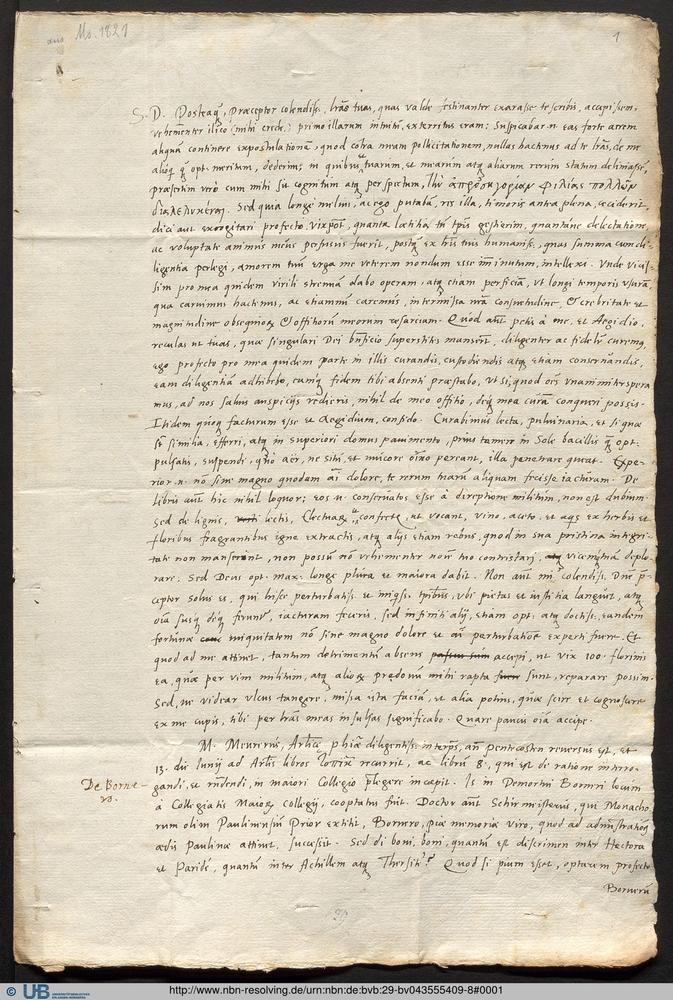 Ms. 1821
1
S. D. Posteaq̃, Præceptor colendiss. lr̃as tuas, quas valde festinanter exarasse te scribis, accepissem,
vehementer ilico (mihi crede) primo illarum intuitu, exterritus eram: Suspicabar .n. eas forte acrem
aliquã continere expostulationẽ, quod cõtra meam pollicitationem, nullas hactenus ad te lr̃as, de me
opt. meritum, dederim; in quibus tuarum, et mearum atq; aliarum rerum statum
præsertim vero cum mihi sit cognitum atq; perspectum, τὴν ἀπροσηγορίαν φιλίας πολλῶν
διαλελυκέναι. Sed quia longe melius, ac ego putabã, res illa, timoris antea plena, ceciderit,
dici aut excogitari profecto vix põt, quanta lætitia tũ tp̃ris gestierim, quantáne delectatione
ac voluptate animus meus perfusus fuerit, postq̃ ex lr̃is tuis humaniss. quas summa cum di-
ligentia perlegi, amorem tuũ erga me veterem nondum esse imminutum, intellexi. Unde vicis-
sim pro mea quidem virili strenuã dabo operam, atq; etiam perficiã, ut longi temporis usurã,
qua caruimus hactenus, ac etiamnũ caremus, intermissa nr̃a consuetudine, & crebritate et
magnitudine obsequiorũ & offitiorũ meorum resarciam. Quod aũt petis à me, et Aegidio,
reculas ut tuas, quæ singulari Dei bñficio superstites manserũt, diligenter ac fidelr̃ curemꝰ,
ego profecto pro mea quidem parte in illis curandis, custodiendis atq; etiam conservãdis,
eam diligentiã adhibebo, eamq; fidem tibi absenti præstabo, ut si, quod oẽs unanimiter spera
mus, ad nos salvis auspicijs redieris, nihil de meo offitio, deq; mea curã conqueri possis.
Itidem quoq; facturum esse et Aegidium, confido. Curabimus lecta, pulvinaria, et si quæ
sũt similia, efferri, atq; in superiori domus pavimento, prius tamen in Sole bacillis q̃ opt.
pulsatis, suspendi, quò aër, ne situ, et mucore oĩno pereant, illa penetrare queat. Expe-
rior .n. nõ sine magno quodam aĩ dolore, te rerum tuarũ aliquam fecisse iacturam. De
libris aũt hic nihil loquor; eos .n. conservatos esse à direptione militum, non est dubium.
Sed de lignis, lectis, confecte, ut vocant, vino, aceto, et aqs ex herbis et
floribus fragrantibus igne extractis, atq; alijs etiam rebus, quod in sua pristina integri-
tate non manserint, non possũ nõ vehementer noĩe tuo contristari, vicemq; tuã deplo-
rare. Sed Deus opt. max. longe plura et maiora dabit. Non aũt mi colendiss. Dñe p̃-
ceptor solus es, qui hisce perturbatiss. et iniqss. tp̃ribus, ubi pietas et iustitia languet, atq;
oĩa susq; deq; ferunt, iacturam feceris, sed infiniti alij, etiam opt. atq; doctiss. eandem
fortunæ iniquitatem nõ sine magno dolore et aĩ perturbatiõe experti fuere. Et
quod ad me attinet, tantum detrimentũ absens accepi, ut vix 100. florinis
ea, quæ per vim militum, atq; aliorũ prædonũ mihi rapta sunt, reparare possim.
Sed, ne videar ulcus tangere, missa ista faciã, et alia potius, quæ scire et cognoscere
ex me cupis, tibi per lr̃as meas insulsas significabo. Quare paucis oĩa accipe.
M. Meurerus, Artiũ phiæ diligentiss. interp̃s, añ Pentecosten reversus est, et
13. die Iunij ad Artis libros recurrit, ac librũ 8. qui est de ratione interro-
gandi, et rñdendi, in maiori Collegio p̃legere incæpit. Is in Demortui Borneri locum
De Borne-
ro.
à Collegiatis Maioris Collegij, cooptatus fuit. Doctor aũt Schirmeisterus, qui Monacho
rum olim Paulinensiũ Prior extitit, Bornero, piæ memoriæ viro, quod ad administrationẽ
ædis Paulinæ attinet, successit. Sed di boni, boni, quantũ est discrimen inter Hectora
et Paridẽ, quantũ inter Achillem atq; Thersitẽ? Quod si pium esset, optarem profecto
Bornerũ
UB
http://www.nbn-resolving.de/urn:nbn:de:bvb:29-bv043555409-8#0001